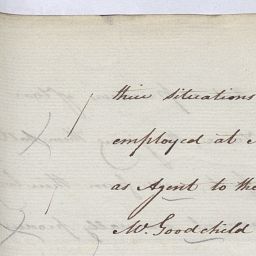 their situations
employed at
as Agent to the
Mr. Goodchild